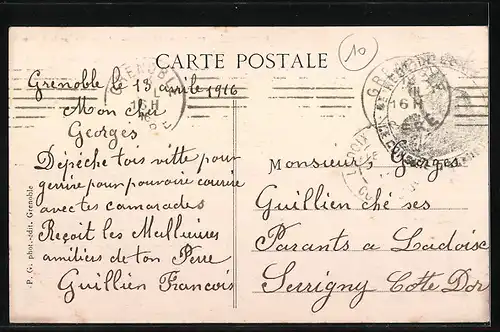 CARTE POSTALE
10
GRENOBLE
16 H
Grenoble le 13 avrile 1916
Mon cher
Georges
Dépêche tois vitte pour
gerire pour pouvoire courire
avec tes camarades
Reçoit les Meilleures
amitiées de ton Pere
Guillien Francois
Monsieur Georges
Guillien ché ses
Parants a Ladoise
Serrigny Côte Dor
P. G. phot.-édit. Grenoble